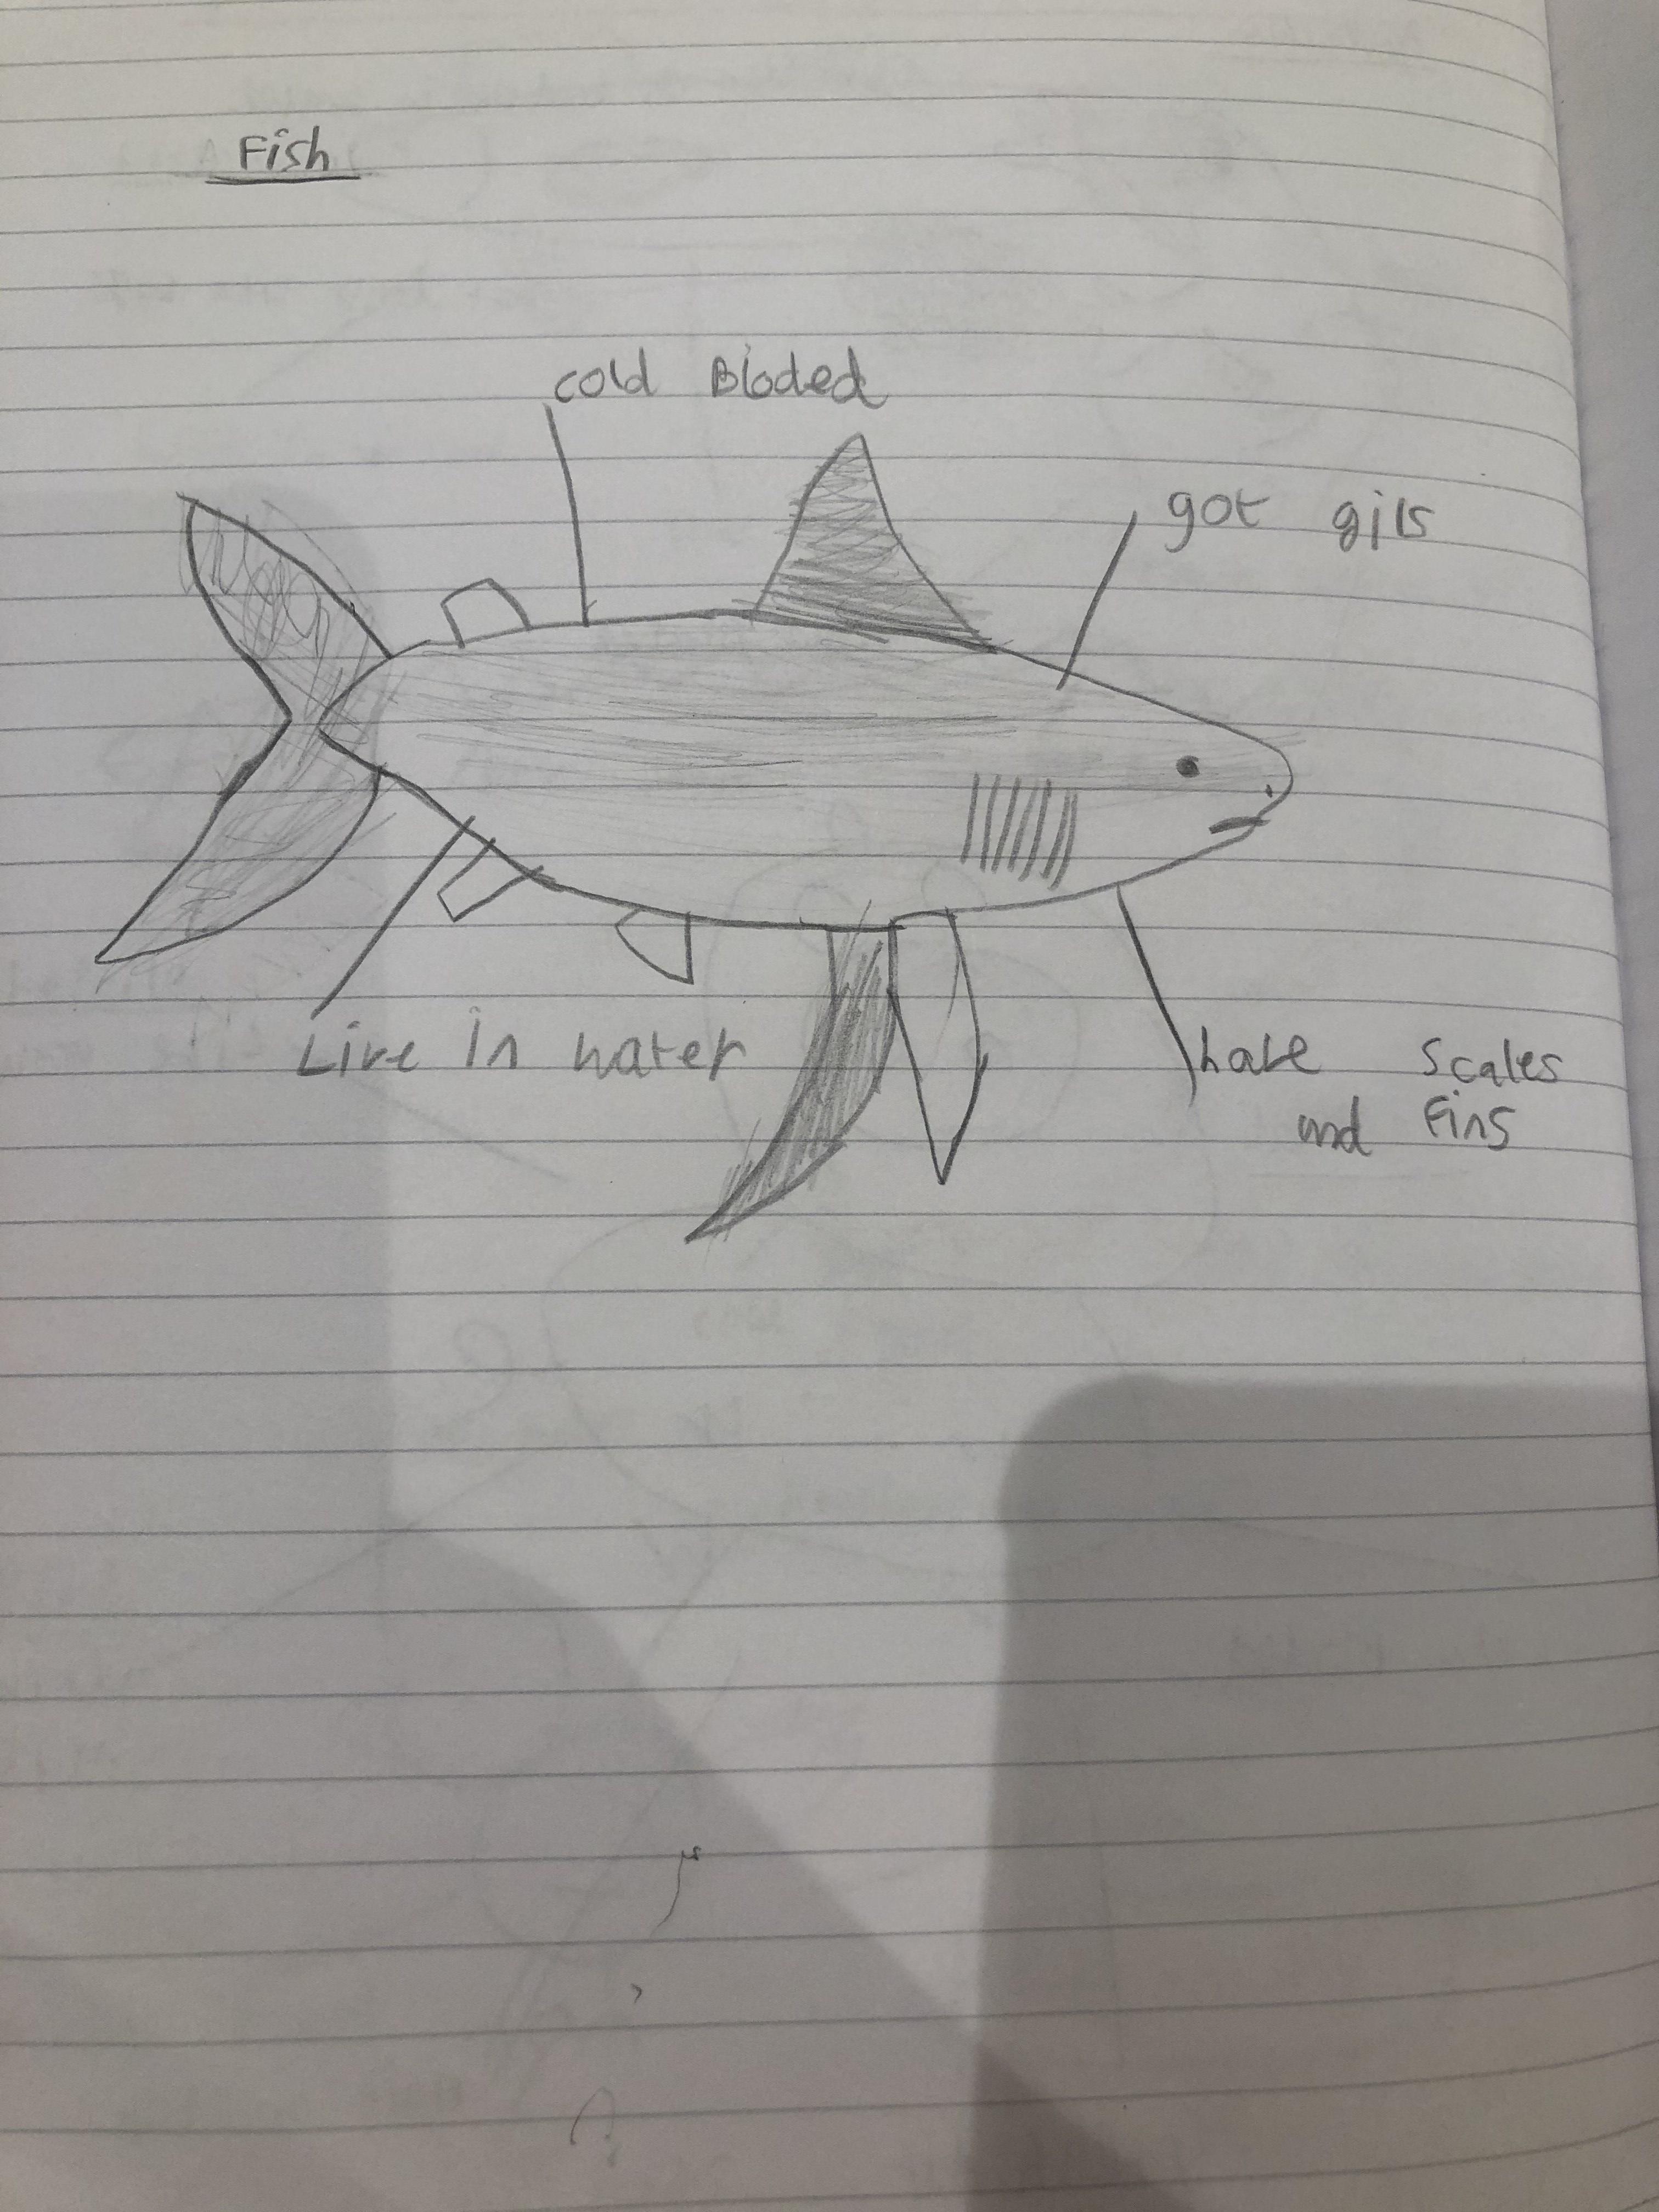 Fish
cold Bloded
got gils
Live in water
have scales
and Fins